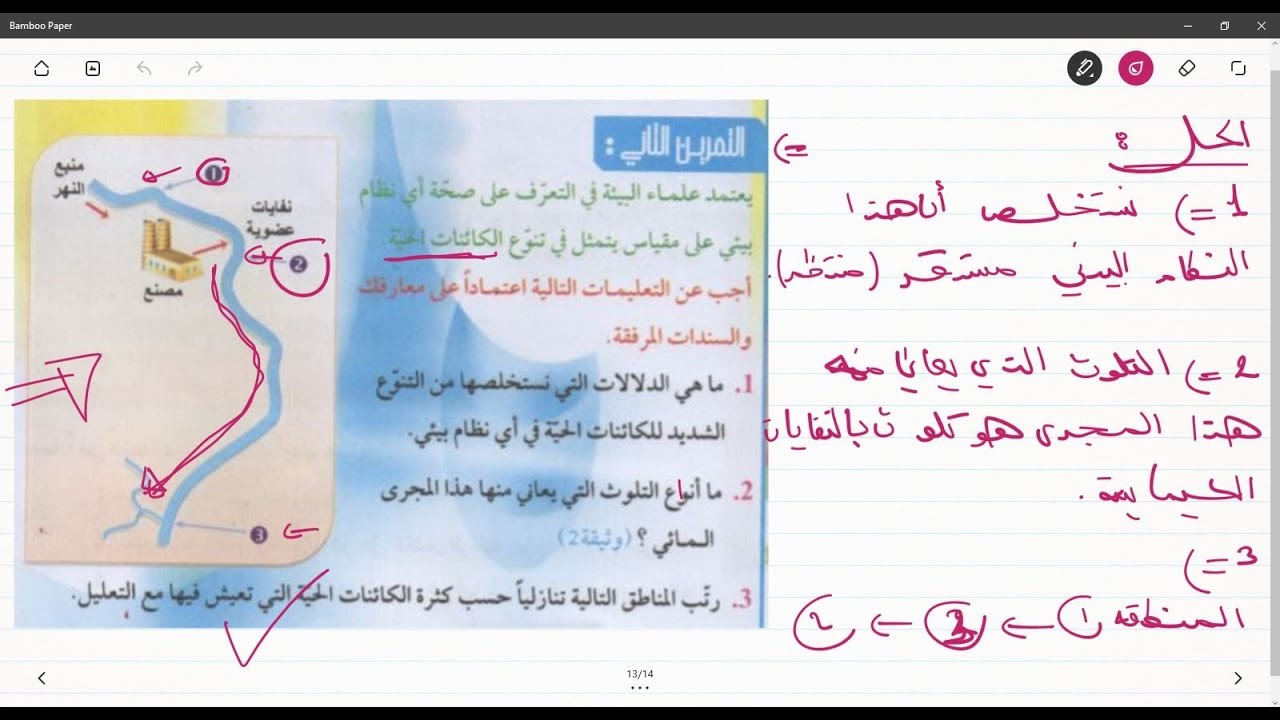 Bamboo Paper
التمرين الثاني :
يعتمد علماء البيئة في التعرّف على صحّة أي نظام
بيئي على مقياس يتمثل في تنوّع الكائنات الحيّة.
أجب عن التعليمات التالية اعتماداً على معارفك
والسندات المرفقة.
1. ما هي الدلالات التي نستخلصها من التنوّع
الشديد للكائنات الحيّة في أي نظام بيئي.
2. ما أنواع التلوث التي يعاني منها هذا المجرى
المائي ؟ (وثيقة2)
3. رتّب المناطق التالية تنازلياً حسب كثرة الكائنات الحيّة التي تعيش فيها مع التعليل.
منبع
النهر
1
نفايات
عضوية
2
مصنع
3
الحل :
1 =) نستخلص أن هذا
النظام البيئي مستقر (منتظم).
2 =) التلوث الذي يعاني منه
هذا المجرى هو تلوث بالنفايات
الكيميائية.
3 =)
المنطقة 1 ← 3 ← 2
13/14